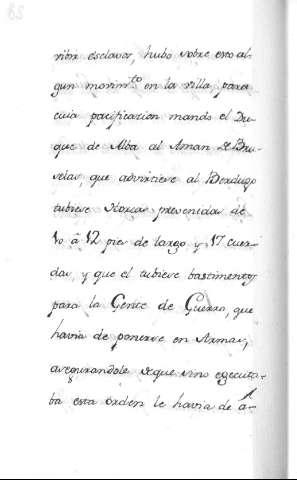 vivir esclavos, hubo sobre esto al-
gun movim.to en la villa, para
cuia pacificazion mando el Du-
que de Alba al Aman de Bru-
selas, que advirtiese al Berdugo
tubiese Horcas prevenidas de
10 â 12 pies de largo y 17 cuer-
das, y que el tubiese bastimentos
para la Gente de Guerra, que
havia de ponerse en Armas,
asegurandole que si no egecuta-
ba esta orden le havia de a-